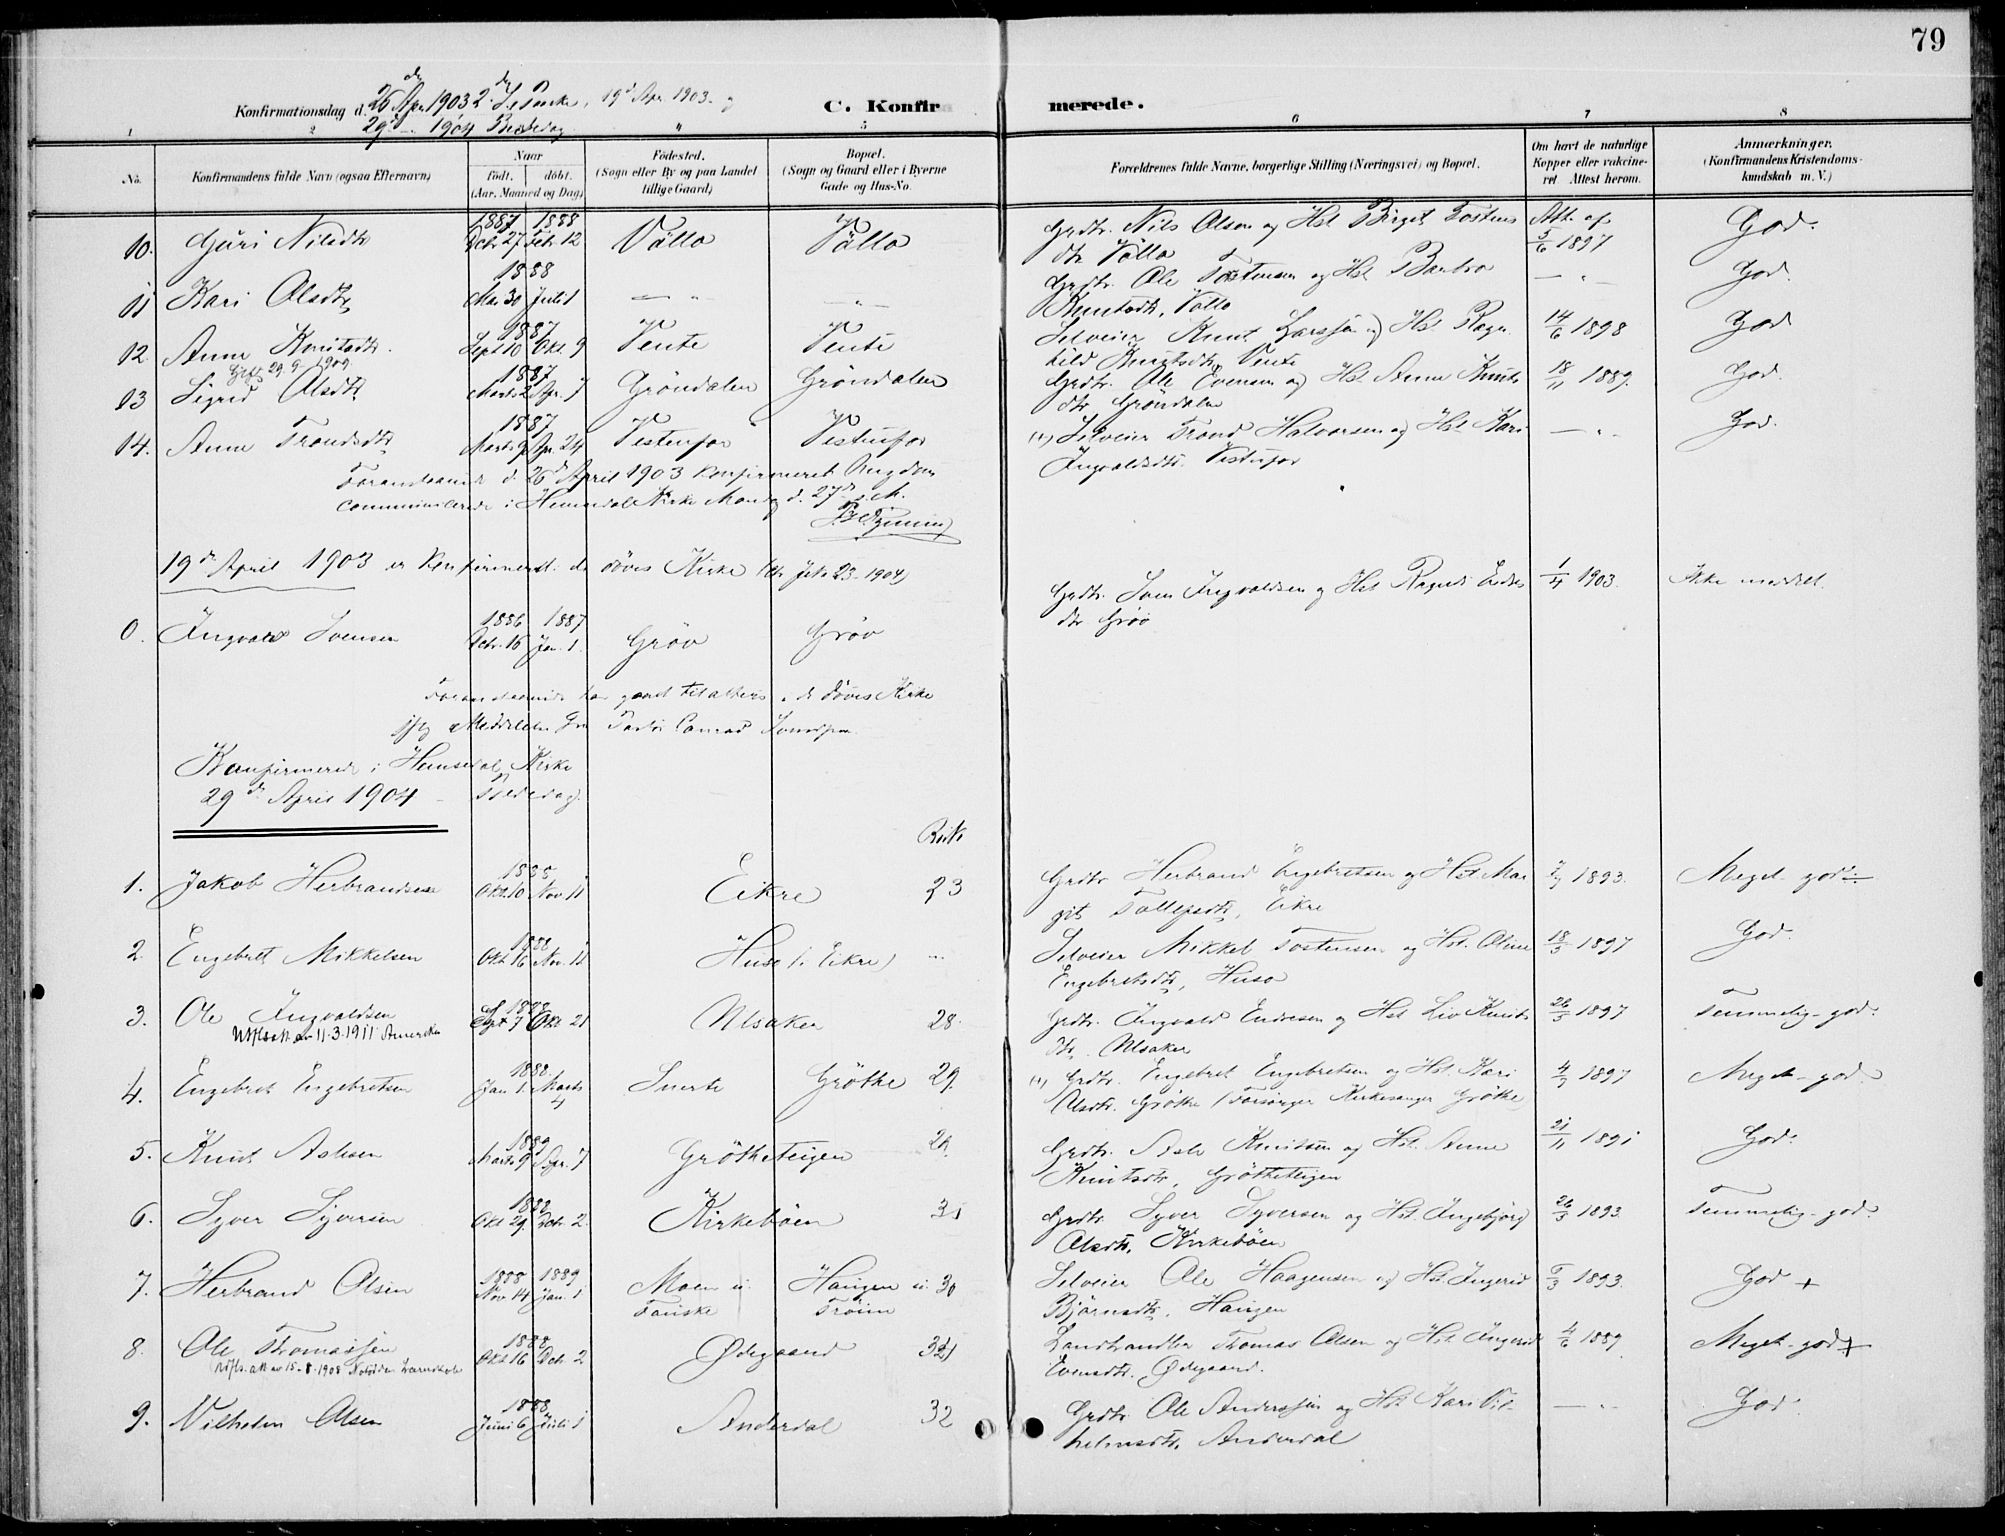 79
Konfirmationsdag d. 26 Apr. 1903 2 S. e. Paaske, 19 Apr. 1903 og
29 — 1904 Bededag
C. Konfirmerede.
1 2 3 4 5 6 7 8
No. Konfirmandens fulde Navn (ogsaa Efternavn)
Naar
født. døbt.
(Aar, Maaned og Dag)
Fødested.
(Sogn eller By og paa Landet
tillige Gaard)
Bopæl.
(Sogn og Gaard eller i Byerne
Gade og Hus-No.
Forældrenes fulde Navne, borgerlige Stilling (Næringsvei) og Bopæl.
Om havt de naturlige
Kopper eller vakcine-
ret Attest herom.
Anmærkninger.
(Konfirmandens Kristendoms-
kundskab m. V.)
10. Guri Nilsdtr 1887 Dcbr. 27 1888 Febr. 12 Vøllo Vøllo Grdbr. Nils Olsen og Hst. Birgit Tostens Att. af 5/6 1897 God.
dtr Vøllo
11 Kari Olsdtr 1888 Mai 30 Juli 1 — " — — " — Grdbr. Ole Tostensen og Hst. Barbro — " — God.
Knutsdtr, Vøllo
12. Anne Knutsdtr. 1887 Sept. 10 Okt. 9 Vente Vente Selveier Knut Larssøn og Hst. Ragn 14/6 1898 God
hild Knutsdtr, Vente
Gift 29-9-1909
13 Sigrid Olsdtr 1887 Marts 2 Apr. 7 Grøndalen Grøndalen Grdbr. Ole Evensen og Hst. Anne Knuts 18/11 1889. God.
dtr Grøndalen
14. Anne Trondsdtr 1887 Marts 9 Apr. 24 Vestenfor Vestenfor (+) Selveier Trond Halvorsen og Hst. Kari — " — God.
Ingvaldsdtr. Vestenfor
Foranstaaende d. 26de April 1903 konfirmeret Ungdom
communicerede i Hemsedals Kirke Mandag d. 27de s. M.
19de April 1903 er konfirmeret i de døves Kirke
0. Ingvald Svensen 1886 Dcbr. 16 1887 Jan. 1. Grøv Grøv Grdbr. Sven Ingvaldsen og Hst. Ragndi Endres 1/4 1903. Ikke meddelt.
dtr Grøv
Foranstaaende har gaaet til alters i de døves Kirke
iflg Meddelelse fra Pastor Conrad
Konfirmerede i Hemsedal Kirke
29de April 1904 - Bededag.
Rode
1. Jakob Herbrandsen 1888 Okt. 10 Nov. 11 Eikre 23 Grdbr Herbrand Engebretsen og Hst. Mar 1893. Meget god
git Tollefsdtr, Eikre
2. Engebret Mikkelsen 1888 Okt. 16 Nov. 11 Huso (Eikre) — Selveier Mikkel Tostensen og Hst. Oline 18/5 1897 God.
Engebretsdtr, Huso
3. Ole Ingvaldsen 1888 Sept 7 Okt 21 Ulsaker 28. Grdbr. Ingvald Endresen og Hst Liv Knuts 26/5 1897 Temmelig god.
Utfl. att av 11-3-1911 Amerika
dtr. Ulsaker
4. Engebret Engebretsen 1888 Jan 1. Marts 4 Snerte Grøthe 29. (+) Grdbr. Engebret Engebretsen og Hst. Kari 4/7 1897 Meget god.
Olsdtr. Grøthe (Forsørger Kirkesanger Grøthe)
5. Knut Aslesen 1889 Marts 9 Apr. 7 Grøtheteigen 29. Grdbr. Asle Knutsen og Hst. Anne 21/11 1891 God.
Knutsdtr, Grøtheteigen
6. Syver Syversen 1888 Okt 29. Dcbr. 2. Kirkebøen 31 Grdbr. Syver Syversen og Hst. Ingebjørg 26/3 1893. Temmelig god.
Olsdtr, Kirkebøen
7. Herbrand Olsen 1888 Nov. 14 1889 Jan. 1 Moen u. Haugen u. 30 Selveier Ole Haagensen og Hst. Ingerid 5/3 1893. God +
Fauske Trøim Bjørnsdtr, Haugen
8. Ole Thomassen 1888 Okt. 16 Dcbr. 2 Ødegaard 32 Landhandler Thomas Olsen og Hst. Ingerid 4/6 1889. Meget god +
Utfl. att av 15-8-1908 Notodden Evensdtr. Ødegaard.
9. Vilhelm Olsen 1888 Juni 6 Juli 1 Anderdal 32 Grdbr. Ole Anderssøn og Hst. Kari Vil- — " — God.
helmsdtr, Anderdal